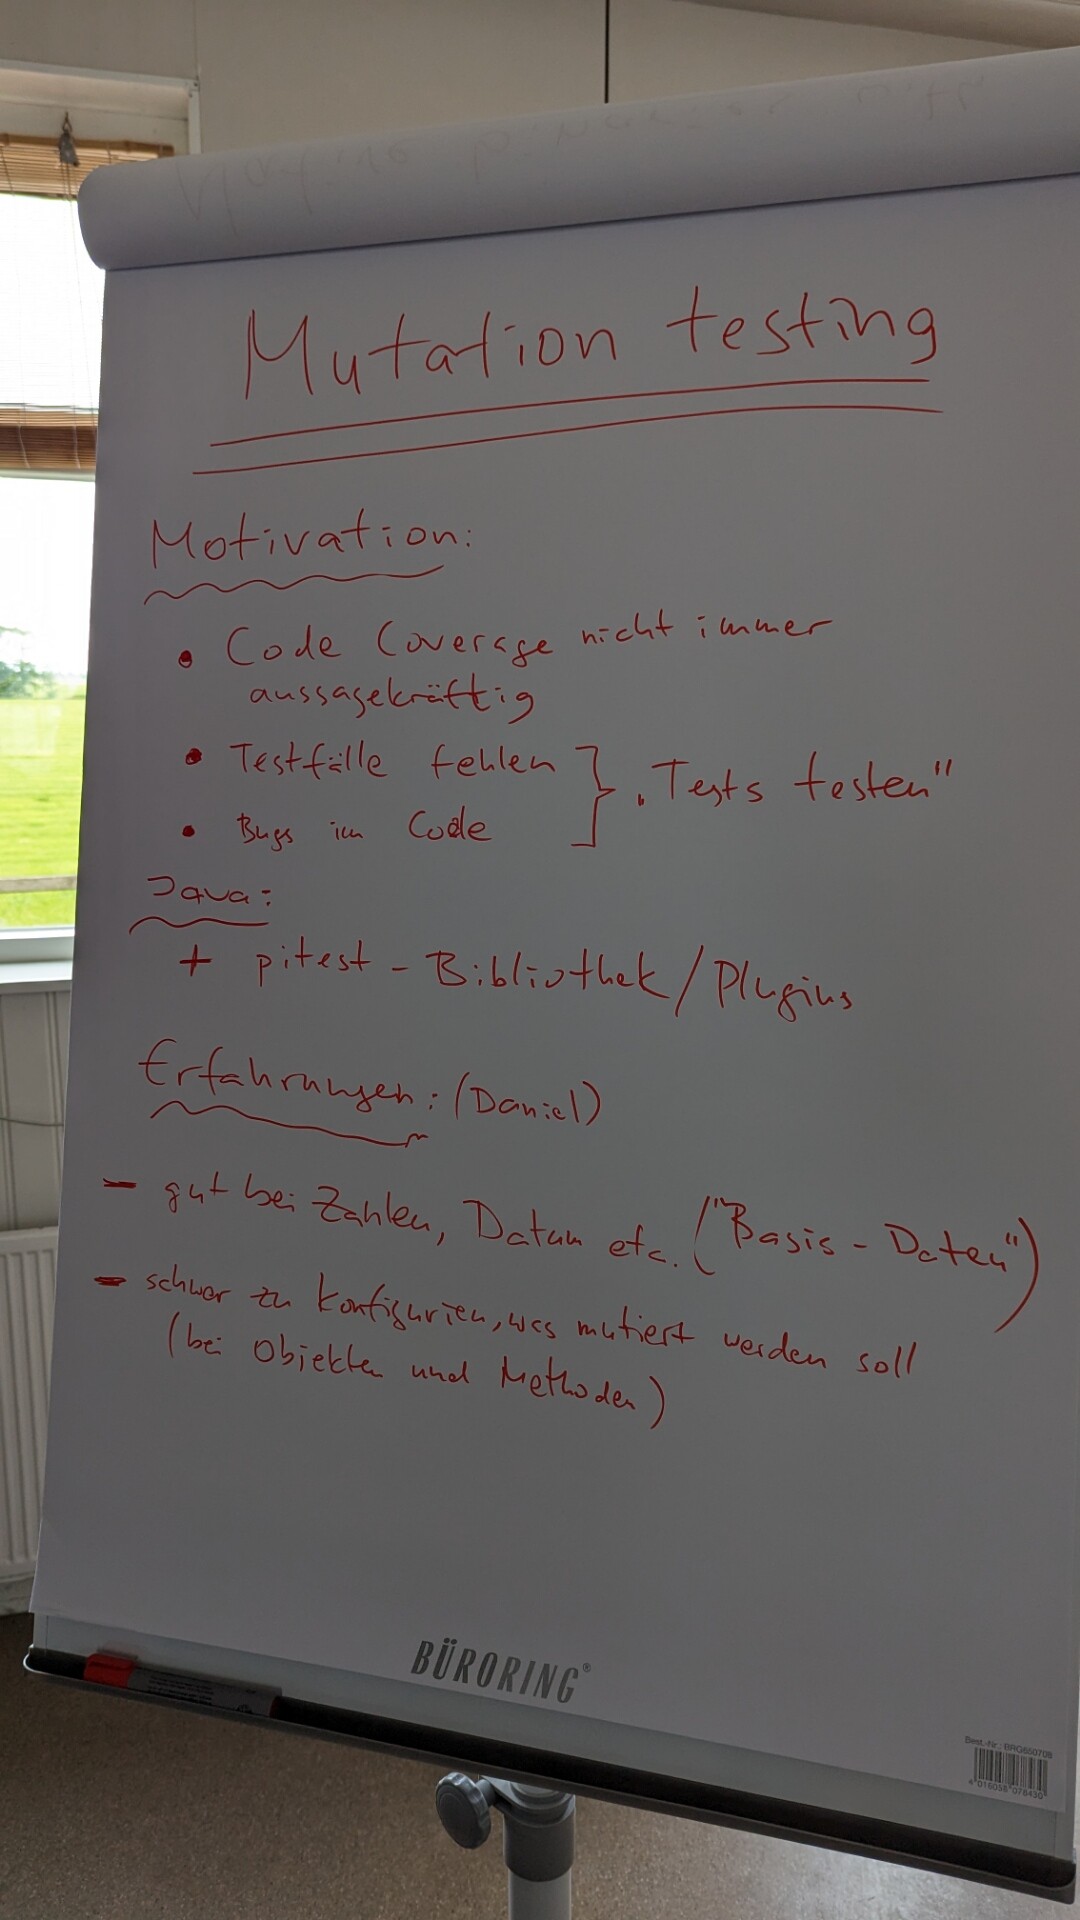 Mutation testing
Motivation:
• Code Coverage nicht immer
aussagekräftig
• Testfälle fehlen
• Bugs im Code
} „Tests testen"
Java:
+ pitest - Bibliothek/Plugins
Erfahrungen: (Daniel)
- gut bei Zahlen, Datum etc. ("Basis-Daten")
- schwer zu konfigurien, was mutiert werden soll
(bei Objekten und Methoden)
BÜRORING®
Best.-Nr.: BRG650708
4 016058 078430